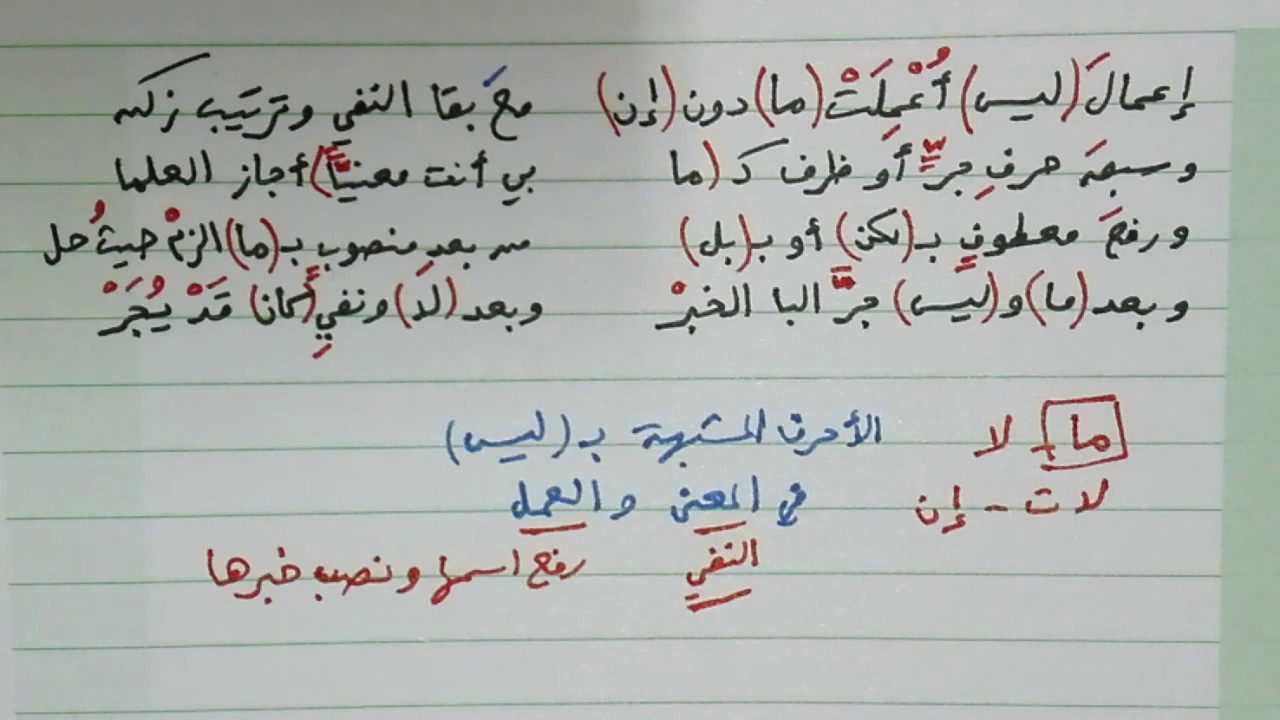 إعمالَ (ليس) أُعْمِلَتْ (ما) دون (إن) معَ بقا النفي وترتيب زكن
وسبقَ حرفِ جرٍّ أو ظرف كـ (ما بي أنت معنيًّا) أجاز العلما
ورفعَ معطوفٍ بـ(لكن) أو بـ(بل) من بعدِ منصوبٍ بـ(ما) الزمْ حيثُ حل
وبعد (ما) و(ليس) جرَّ البا الخبرْ وبعد (لا) ونفيِ (كان) قَدْ يُجَرْ
ما - لا الأحرف المشبهة بـ (ليس)
لات - إن في المعنى والعمل
النفي رفع اسمها ونصب خبرها